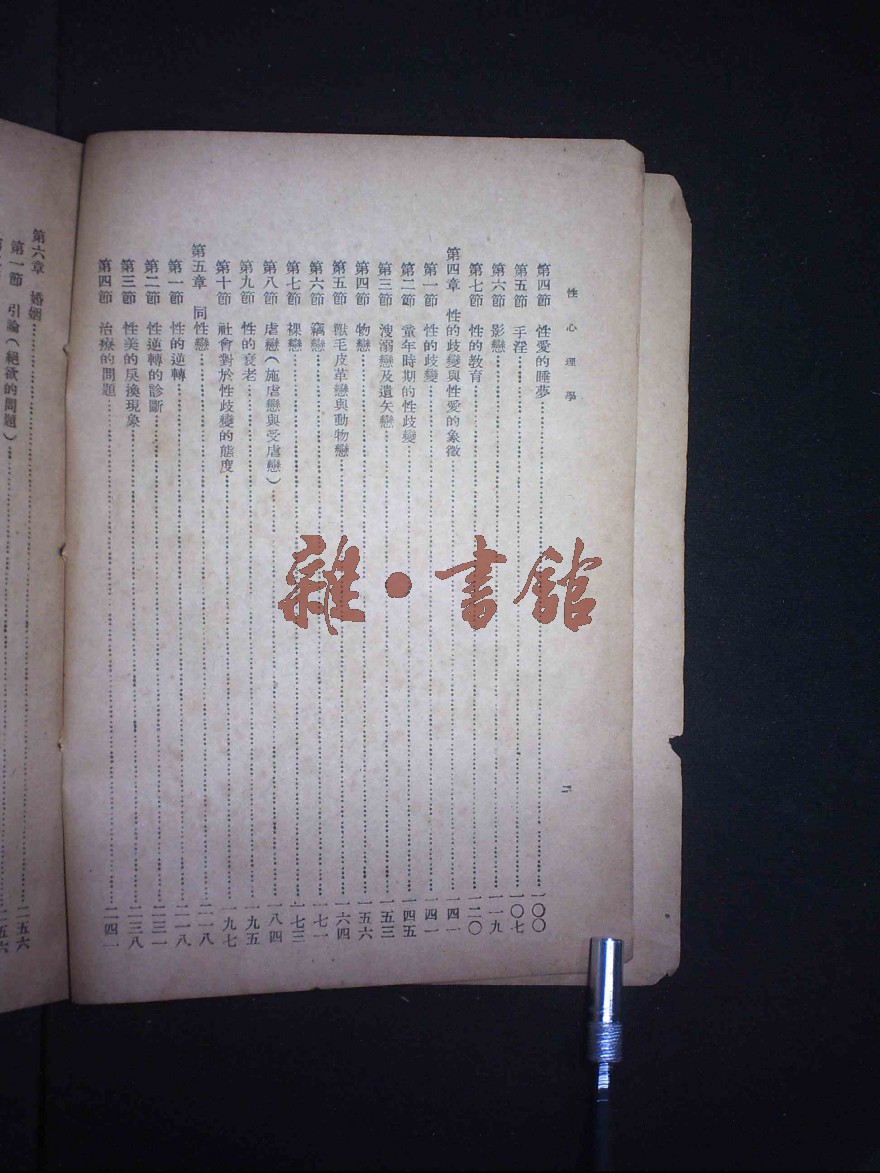 性心理學
二
第四節 性愛的睡夢……一〇〇
第五節 手淫……一〇七
第六節 影戀……一一九
第七節 性的教育……一二〇
第四章 性的歧變與性愛的象徵……一四一
第一節 性的歧變……一四一
第二節 童年時期的性歧變……一四五
第三節 溲溺戀及遺矢戀……一五三
第四節 物戀……一五六
第五節 獸毛皮革戀與動物戀……一六四
第六節 竊戀……一七一
第七節 裸戀……一七三
第八節 虐戀(施虐戀與受虐戀)……一八四
第九節 性的衰老……一九五
第十節 社會對於性歧變的態度……一九七
第五章 同性戀……二一八
第一節 性的逆轉……二一八
第二節 性逆轉的診斷……二三一
第三節 性美的戾換現象……二三八
第四節 治療的問題……二四一
第六章 婚姻……二五六
第一節 引論(絕欲的問題)……二五六
雜·書館